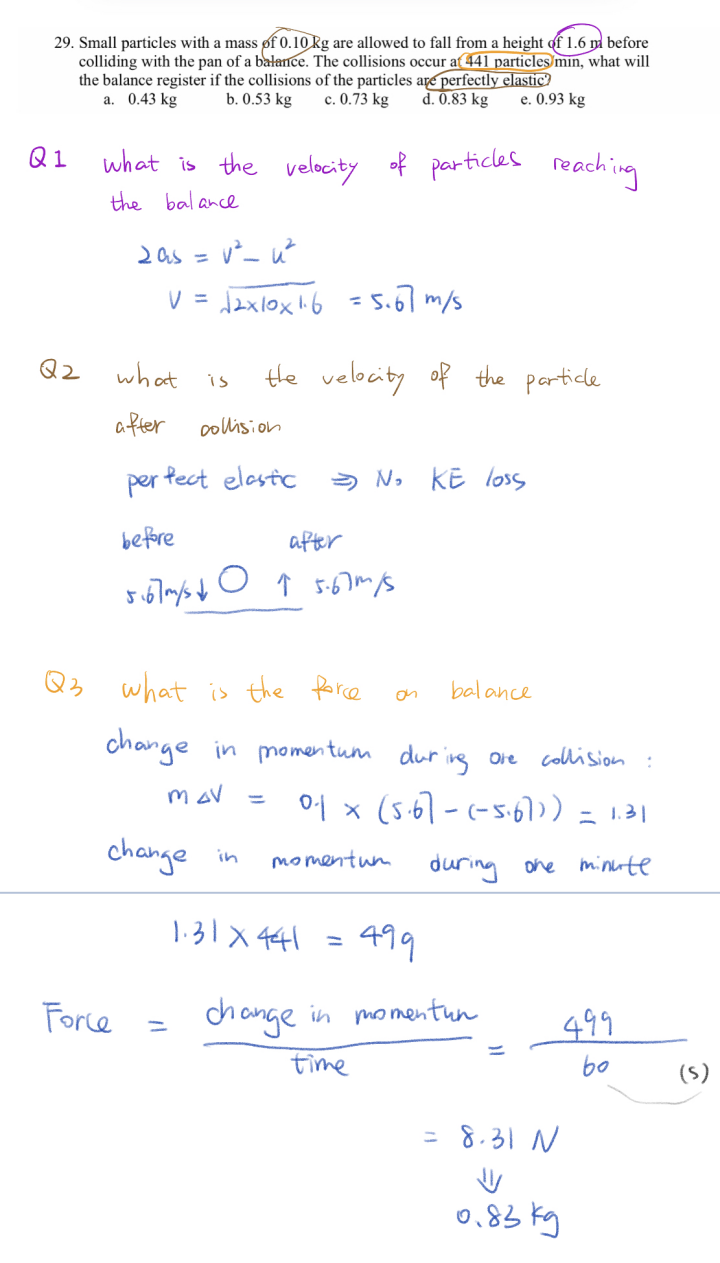 29. Small particles with a mass of 0.10 kg are allowed to fall from a height of 1.6 m before
colliding with the pan of a balance. The collisions occur at 441 particles/min, what will
the balance register if the collisions of the particles are perfectly elastic?
a. 0.43 kg b. 0.53 kg c. 0.73 kg d. 0.83 kg e. 0.93 kg
Q1 what is the velocity of particles reaching
the balance
2as = v² - u²
v = √2x10x1.6 = 5.67 m/s
Q2 what is the velocity of the particle
after collision
perfect elastic ⇒ No KE loss
before after
5.67m/s ↓ ↑ 5.67m/s
Q3 what is the force on balance
change in momentum during one collision :
m△V = 0.1 x (5.67 - (-5.67)) = 1.31
change in momentum during one minute
1.31 x 441 = 499
Force = change in momentun / time = 499 / 60 (s)
= 8.31 N
⇓
0.83 kg